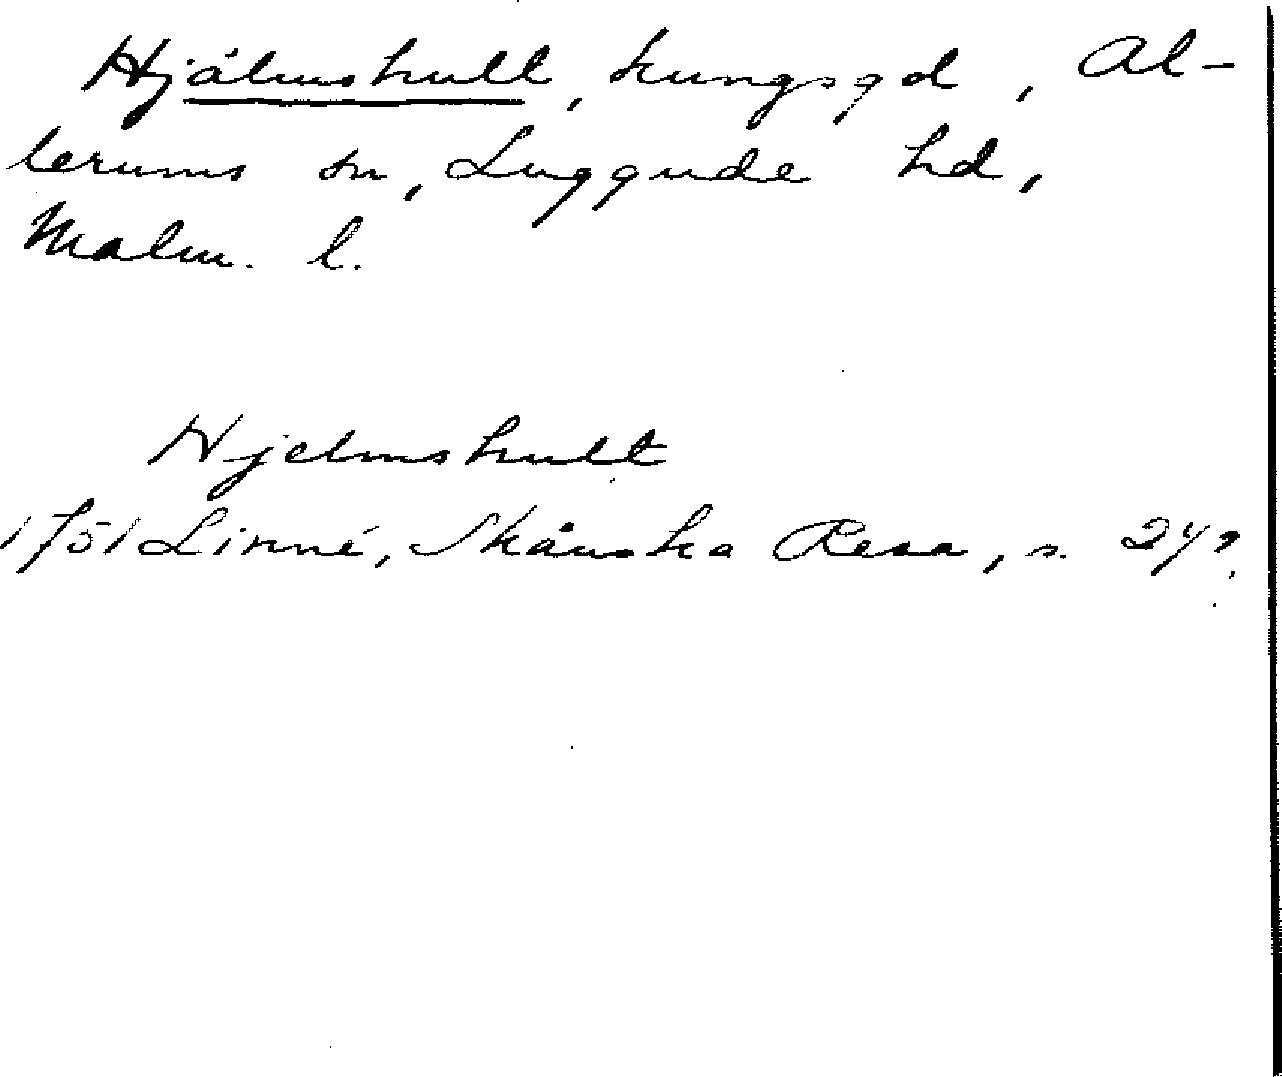 Hjälmshult, kungsgd, Al-
lerums sn, Luggude hd,
Malm. l.
Hjelmshult
1751 Linné, Skånska Resa, s.